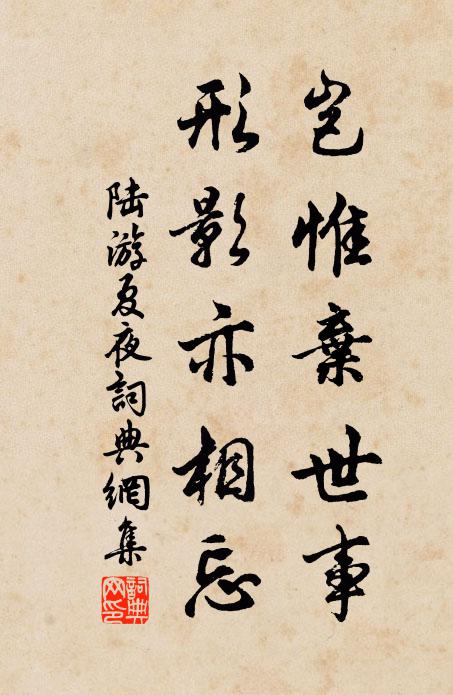 豈惟棄世事
形影亦相忘
陆游夏夜詞典網集
詞典網印